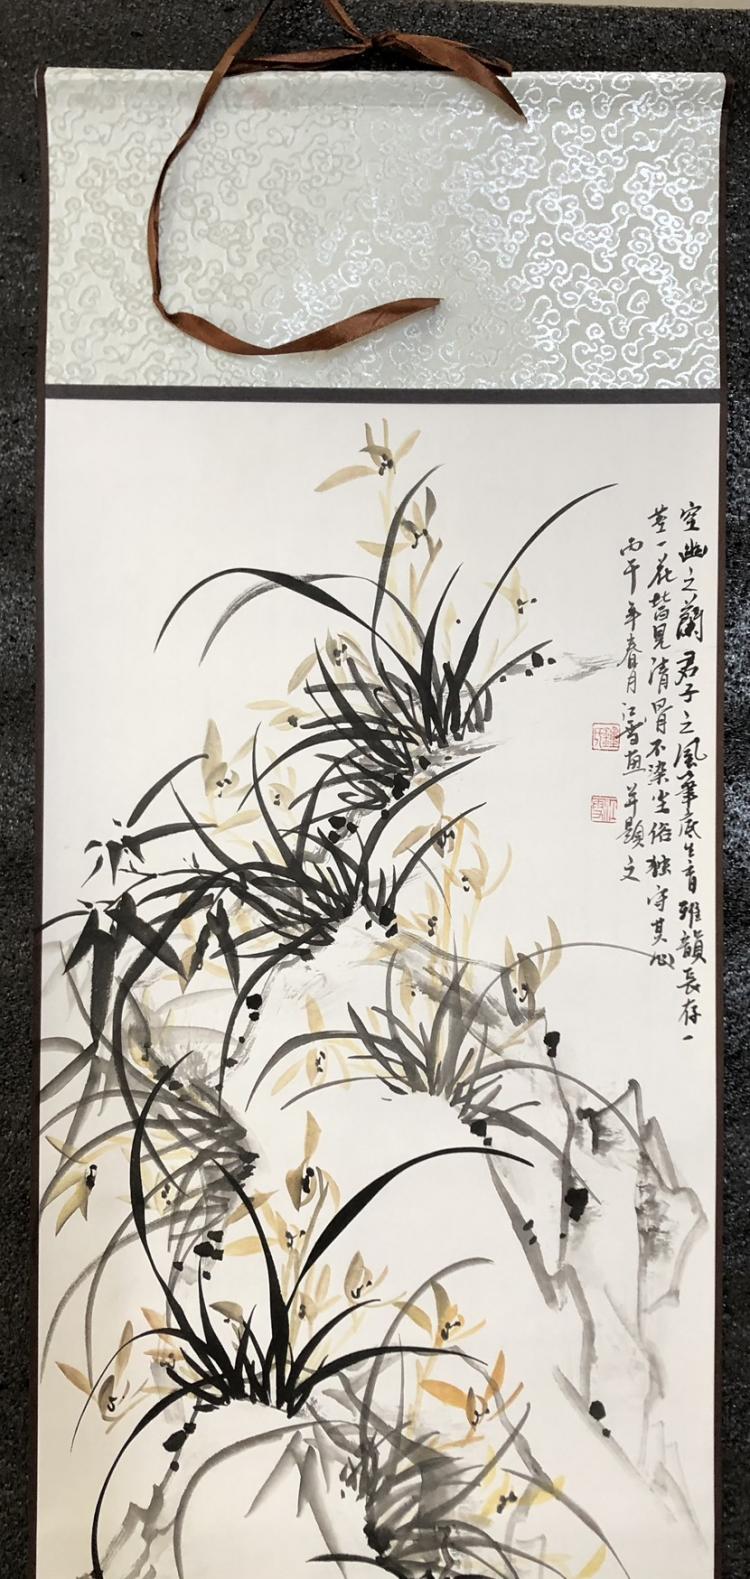 空幽之蘭君子之风筆底生香雅韻長存一
茎一花皆見清骨不染尘俗独守其心
丙午年春月江雪画并题之